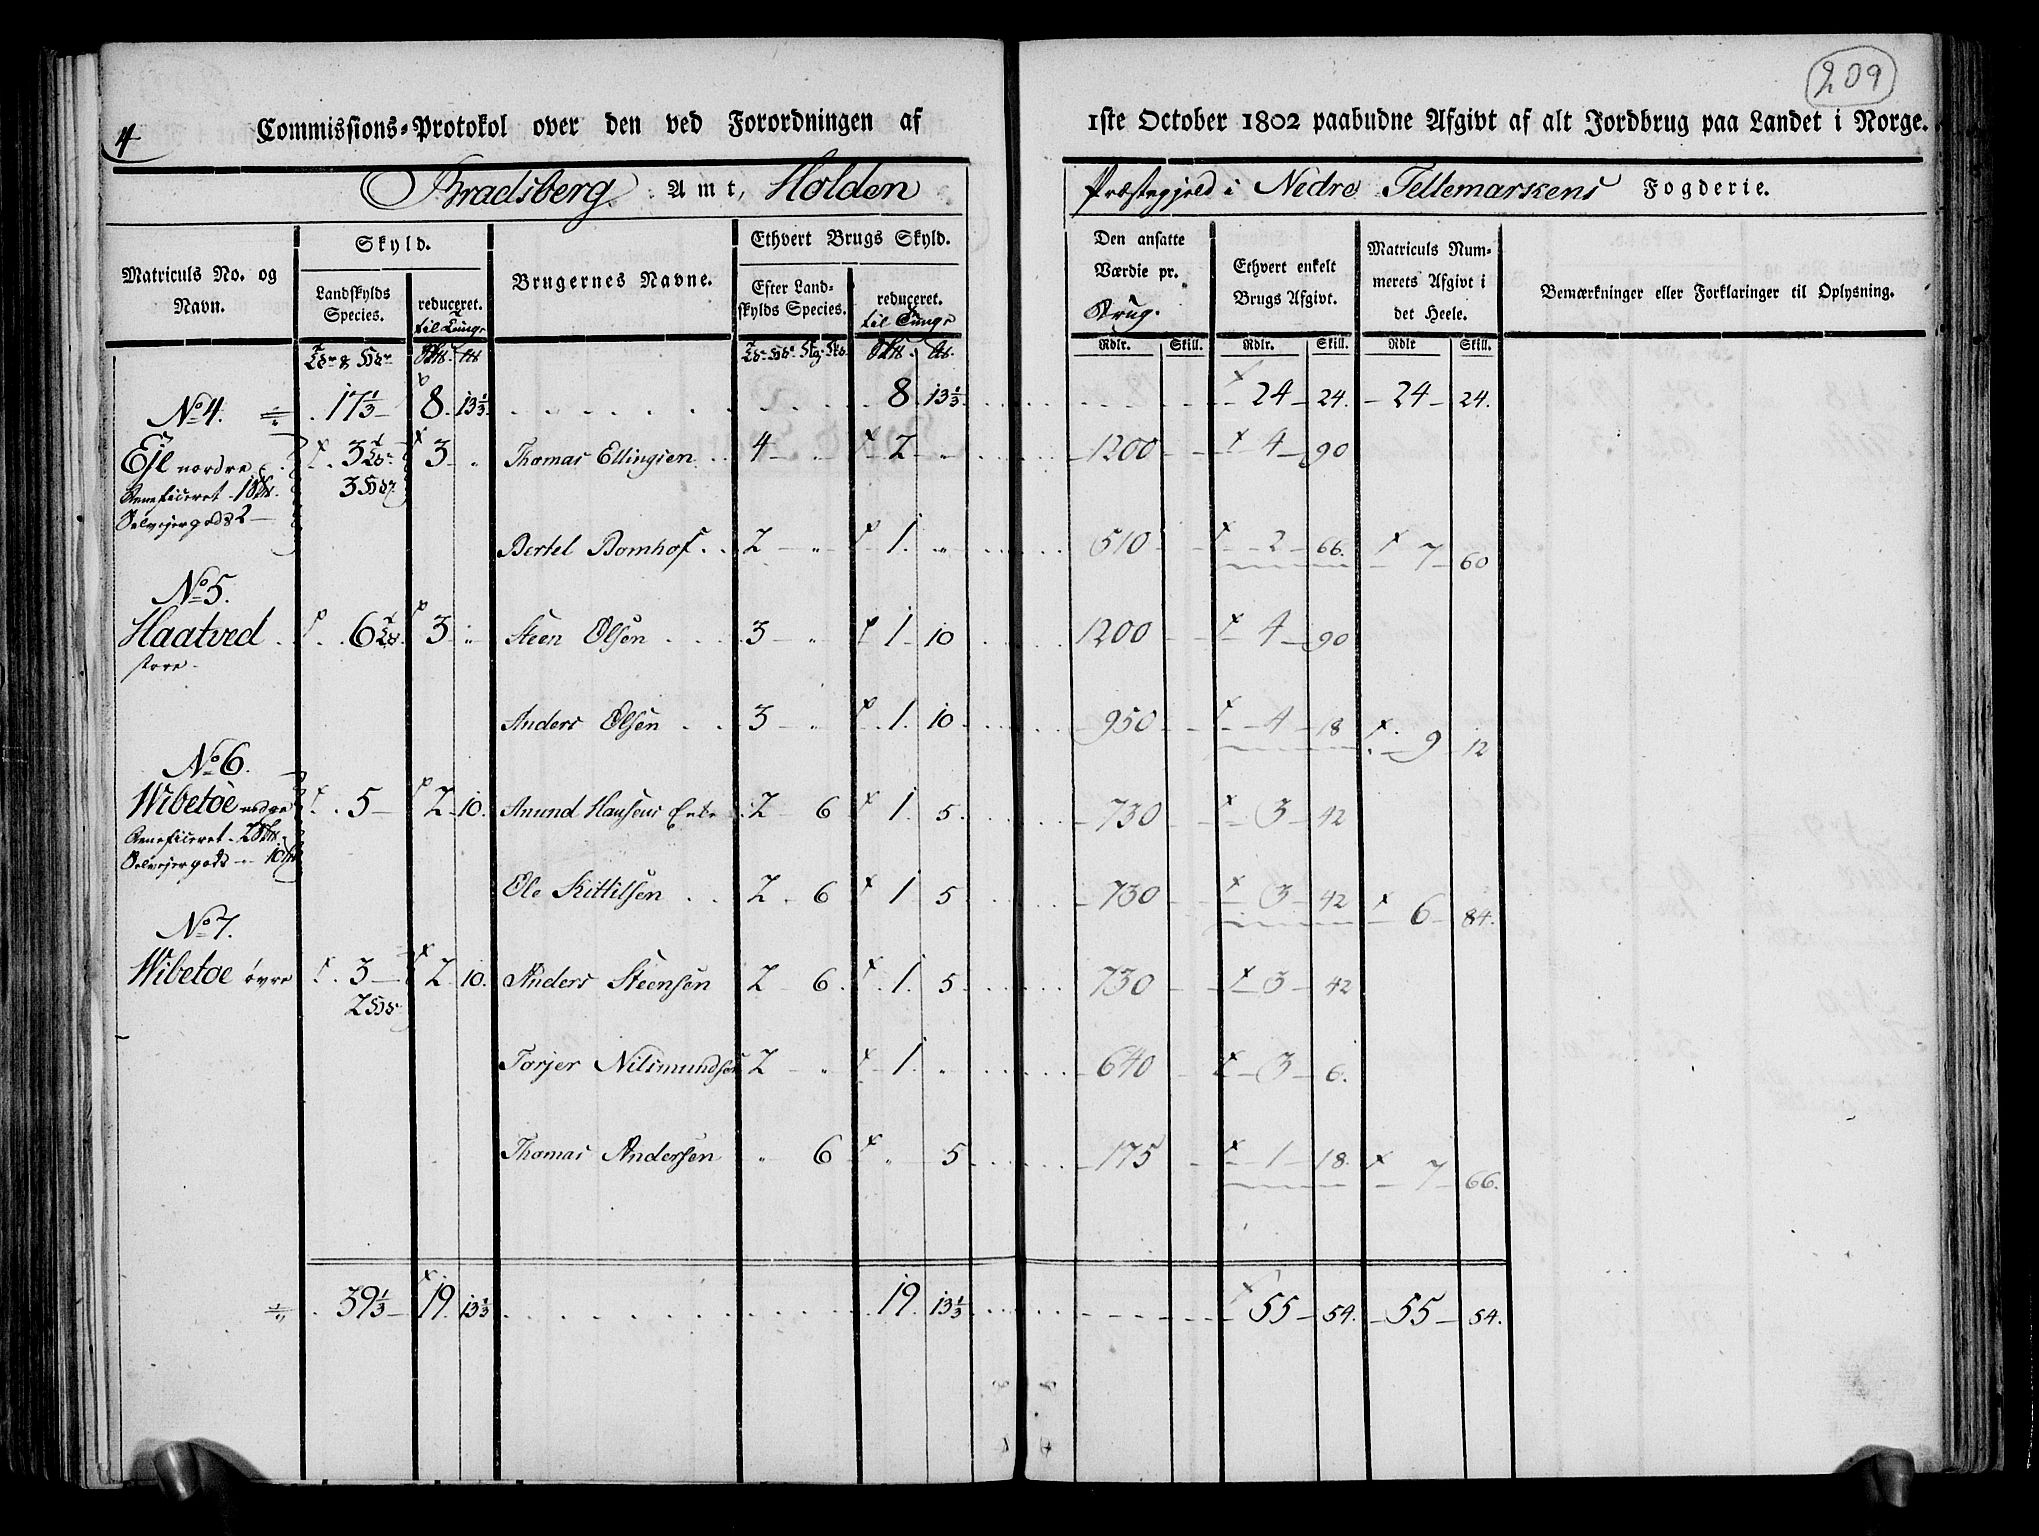 209
4 Commissions-Protokol over den ved Forordningen af 1ste October 1802 paabudne Afgivt af alt Jordbrug paa Landet i Norge.
Bradsberg Amt, Holden Præstegjeld i Nedre Tellemarkens Fogderie.
Matriculs No. og Navn.
Skyld.
Landskylds Species.
reduceret. til Tunge
Brugernes Navne.
Ethvert Brugs Skyld.
Efter Landskylds Species.
reduceret. til Tunge
Den ansatte Værdie pr. Brug.
Ethvert enkelt Brugs Afgivt.
Matriculs Nummerets Afgivt i det Heele.
Bemærkninger eller Forklaringer til Oplysning.
Rdlr. Skill. Rdlr. Skill. Rdlr Skill.
17 1/3 8 13 1/3 8 13 1/3 24 24. 24 24.
No 4.
Eje nordre 3 3 " Thomas Ellingsen 4 " 2 " 1200 4 90
Beneficeret 1
Selvejergods 2
3
Bertel Bomhof 2 " 1 " 510 2 66. 7 60
No 5.
Haatved 6 3 " Steen Olsen 3 " 1 10 1200 4 90
store
Anders Olsen 3 " 1 10 950 4 18 9 12
No 6.
Wibetoe nedre 5 2 10. Amund Hansens Enke 2 6 1 5. 730 3 42
Beneficeret 2
Selvejergods 10
Ole Kittilsen 2 6 1 5 730 3 42 6 84.
No 7.
Wibetoe øvre 3 2 10. Anders Steensen 2 6. 1. 5 730 3 42
2
Torjer Nilsmundsen 2 " 1 " 640 3 6.
Thomas Andersen " 6 " 5 175 1 18. 7 66.
39 1/3 19. 13 1/3 19. 13 1/3 55 54. 55 54.